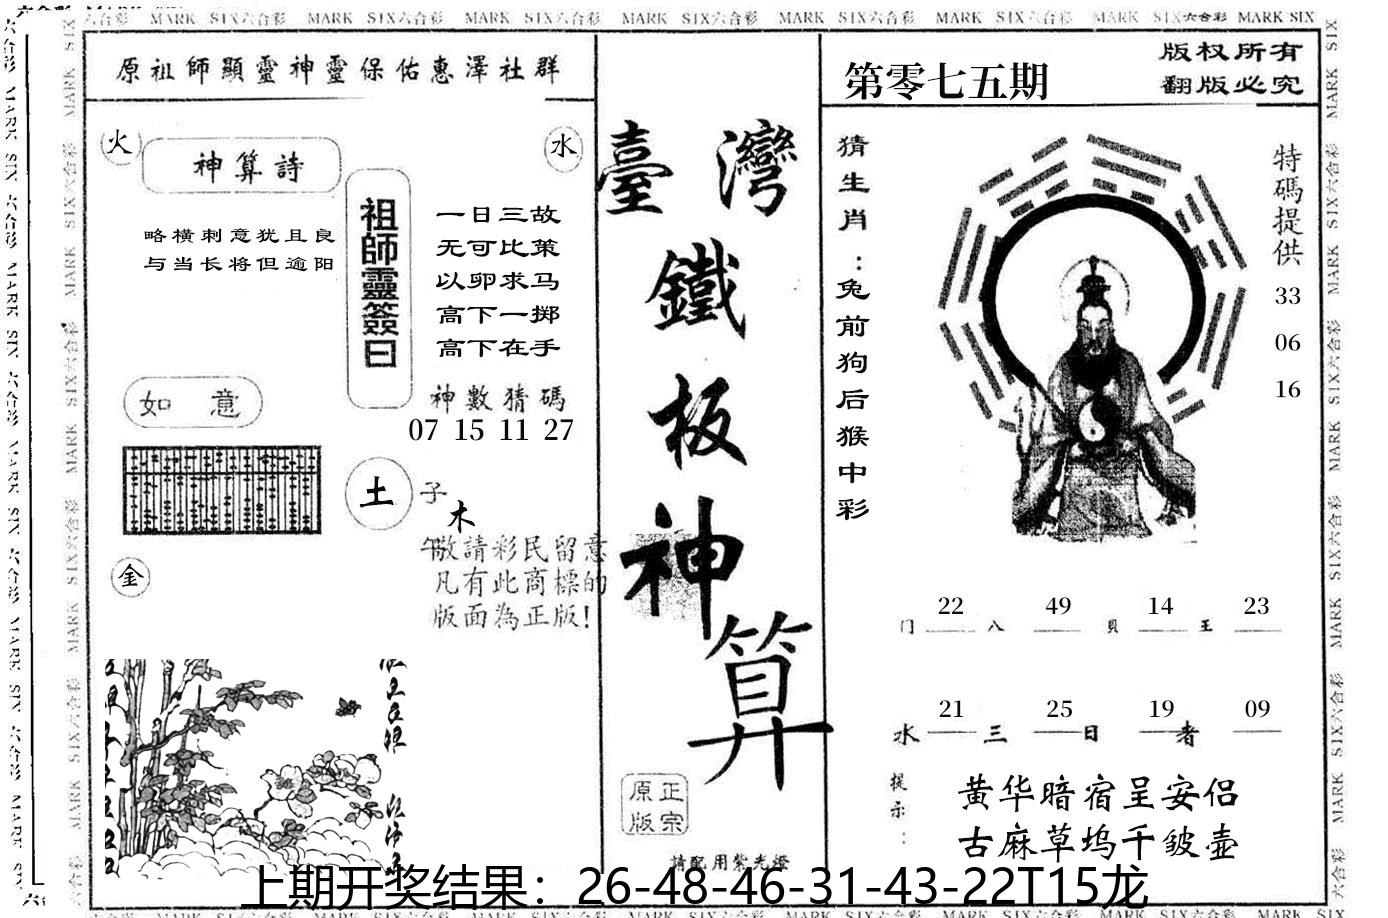 MARK SIX六合彩 MARK SIX六合彩 MARK SIX六合彩 MARK SIX六合彩 MARK SIX六合彩 MARK SIX六合彩 MARK SIX六合彩 MARK SIX
原祖師顯靈神靈保佑惠澤社群
火
神算詩
水
略横刺意犹且良
与当长将但逾阳
祖師靈簽曰
一日三故
无可比策
以卵求马
高下一掷
高下在手
神數猜碼
07 15 11 27
如意
土
子
木
午
金
敬請彩民留意
凡有此商標的
版面為正版!
臺灣
鐵
板
神
算
正宗
原版
請配用紫光燈
第零七五期
版权所有
翻版必究
猜生肖:兔前狗后猴中彩
特碼提供
33
06
16
门 22 八 49 貝 14 王 23
水 21 三 25 日 19 者 09
提示:
黄华暗宿呈安侣
古麻草坞千皱壶
上期开奖结果：26-48-46-31-43-22T15龙